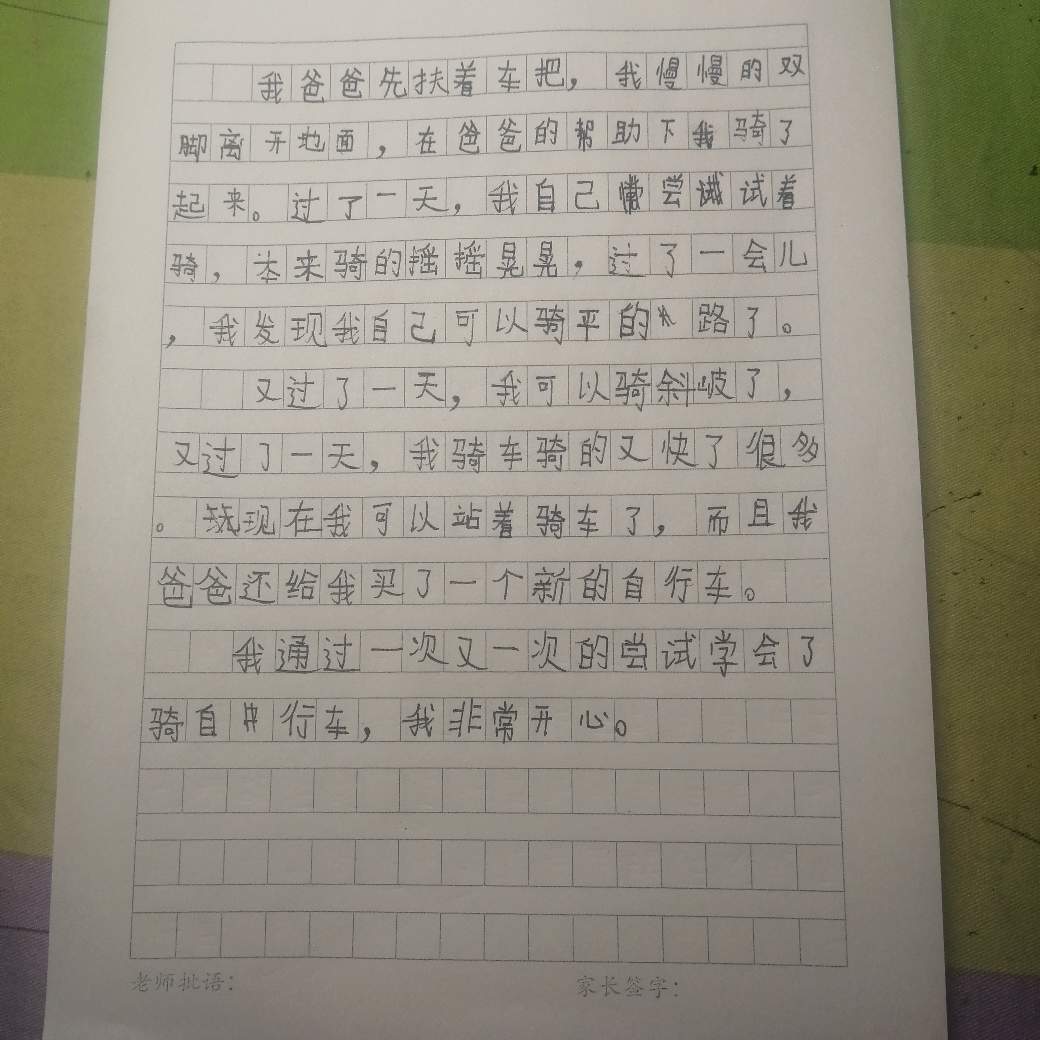 我爸爸先扶着车把，我慢慢的双
脚离开地面，在爸爸的帮助下我骑了
起来。过了一天，我自己尝试着
骑，本来骑的摇摇晃晃，过了一会儿
，我发现我自己可以骑平的路了。
又过了一天，我可以骑斜岐了，
又过了一天，我骑车骑的又快了很多
。现在我可以站着骑车了，而且我
爸爸还给我买了一个新的自行车。
我通过一次又一次的尝试学会了
骑自行车，我非常开心。
老师批语：
家长签字：